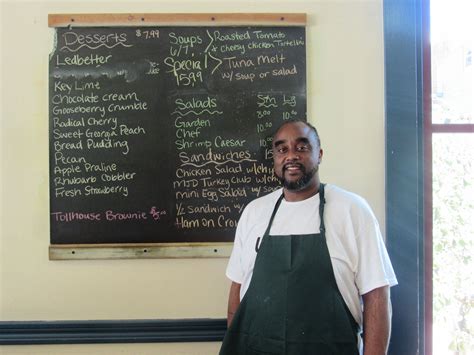 Desserts $7.99
Ledbetter
Key Lime
Chocolate cream
Gooseberry Crumble
Radical Cherry
Sweet Georgia Peach
Bread Pudding
Pecan
Apple Praline
Rhubarb Cobbler
Fresh Strawberry
Tollhouse Brownie
Soups
Roasted Tomato
+ Cheesy Chicken Tortellini
Special
15.99
Tuna melt
w/ soup or salad
Salads
Garden
Chef
Shrimp Caesar 10.
Sandwiches
Chicken Salad w/
Turkey Club w/
mini Egg Salad
1/2 Sandwich w/
Ham on